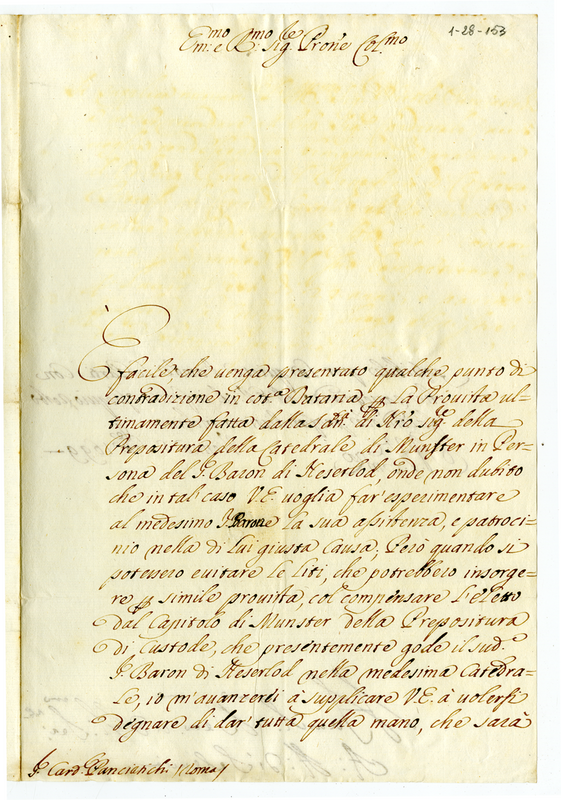 1-28-153
Em:mo e R:mo Sig:le Prōne Col:mo
È facile, che venga presentato qualche punto di
contradizione in cot:a Dataria p La Provista ul=
timamente fatta dalla San:tà di Nrō Sig:e della
Prepositura della Catedrale di Munster in Per=
sona del S. Baron di Heserlod, onde non dubito
che in tal caso V.E. voglia far' esperimentare
al medesimo S. Barone La sua assistenza, e patroci=
nio nella di Lui giusta Causa. Però quando si
potessero evitare Le Liti, che potrebbero insorge=
re p simile provista, col' compensare L'eletto
dal Capitolo di Munster della Prepositura
di Custode, che presentemente gode il sud:o
S. Baron di Heserlod nella medesima Catedra=
Le, io m'avanzerei à supplicare V.E. à volersi
degnare di dar' tutta quella mano, che sarà
S. Card. Panciatichi Roma